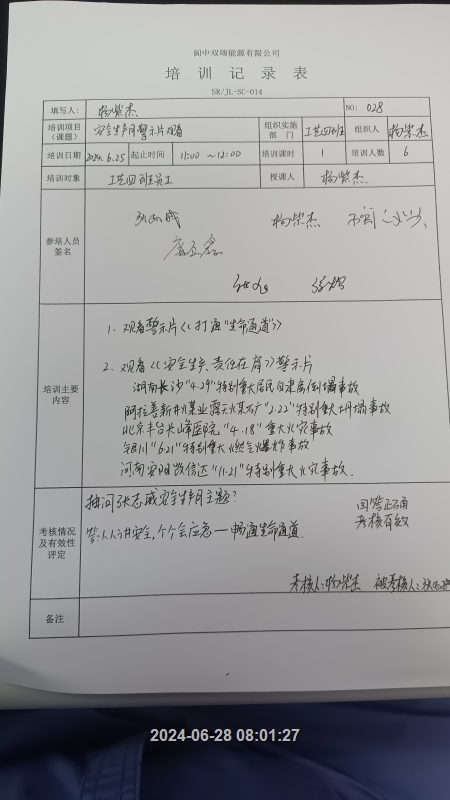 阆中双瑞能源有限公司
培训记录表
SR/JL-SC-014
填写人: 杨紫杰 NO: 028
培训项目(课题) 安全生产月警示片观看 组织实施部门 工艺四班 组织人 杨紫杰
培训日期 2024.6.25 起止时间 11:00 ~12:00 培训课时 1 培训人数 6
培训对象 工艺四班员工 授课人 杨紫杰
参培人员签名
张志威 杨紫杰
培训主要内容
1. 观看警示片《打通"生命通道"》
2. 观看《安全生产、责任在肩》警示片
湖南长沙"4.29"特别重大居民自建房倒塌事故
阿拉善新井煤业露天煤矿"2.22"特别重大坍塌事故
北京丰台长峰医院"4.18"重大火灾事故
银川"6.21"特别重大燃气爆炸事故
河南安阳凯信达"11.21"特别重大火灾事故.
考核情况及有效性评定
抽问张志威安全生产月主题?
答:人人讲安全,个个会应急—畅通生命通道.
回答正确
考核有效
考核人:杨紫杰 被考核人:张志威
备注
2024-06-28 08:01:27